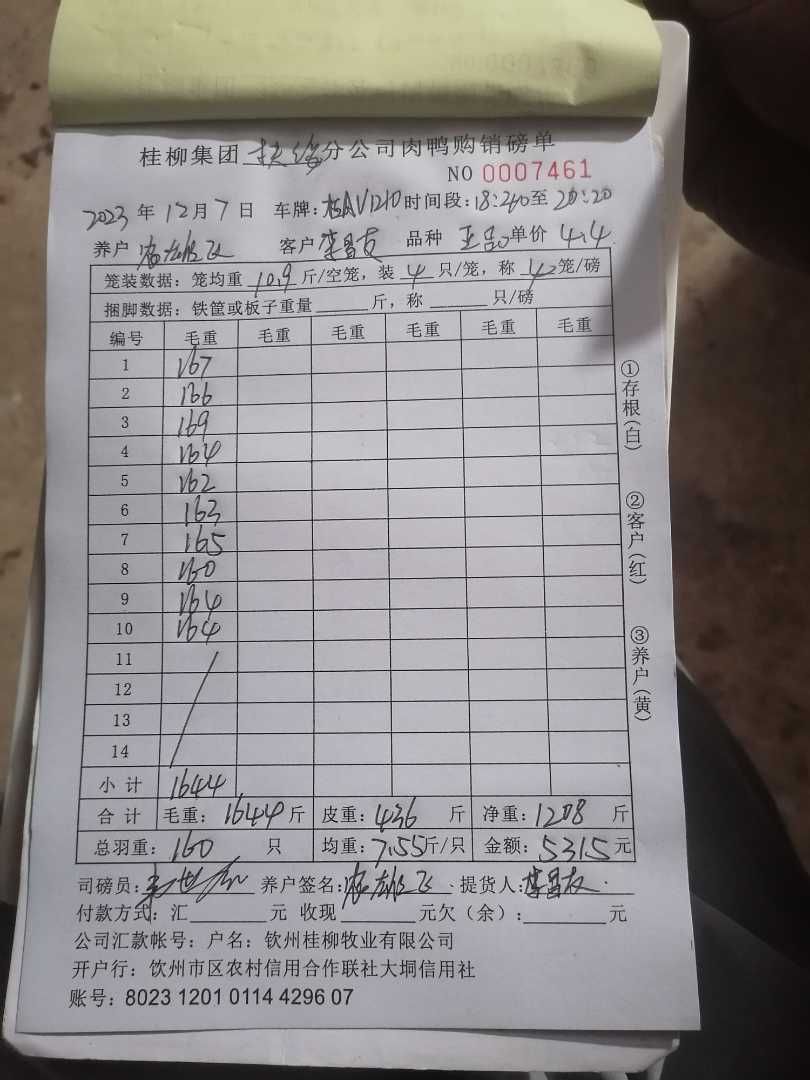 桂柳集团扶绥分公司肉鸭购销磅单
NO 0007461
2023年12月7日 车牌:桂AV1210 时间段:18:20至20:20
养户 客户 李昌友 品种 单价 4.4
笼装数据:笼均重 10.9 斤/空笼,装 4 只/笼,称 4 笼/磅
捆脚数据:铁筐或板子重量 斤,称 只/磅
编号 毛重 毛重 毛重 毛重 毛重 毛重
1 167
2 166
3 169
4 164
5 162
6 163
7 165
8 160
9 164
10 164
11
12
13
14
小计 1644
合计 毛重:1644斤 皮重:436斤 净重:1208斤
总羽重:160只 均重:7.55斤/只 金额:5315元
司磅员: 养户签名: 提货人:李昌友
付款方式:汇 元 收现 元欠(余): 元
公司汇款帐号:户名:钦州桂柳牧业有限公司
开户行:饮州市区农村信用合作联社大垌信用社
账号:8023 1201 0114 4296 07
①存根(白)
②客户(红)
③养户(黄)